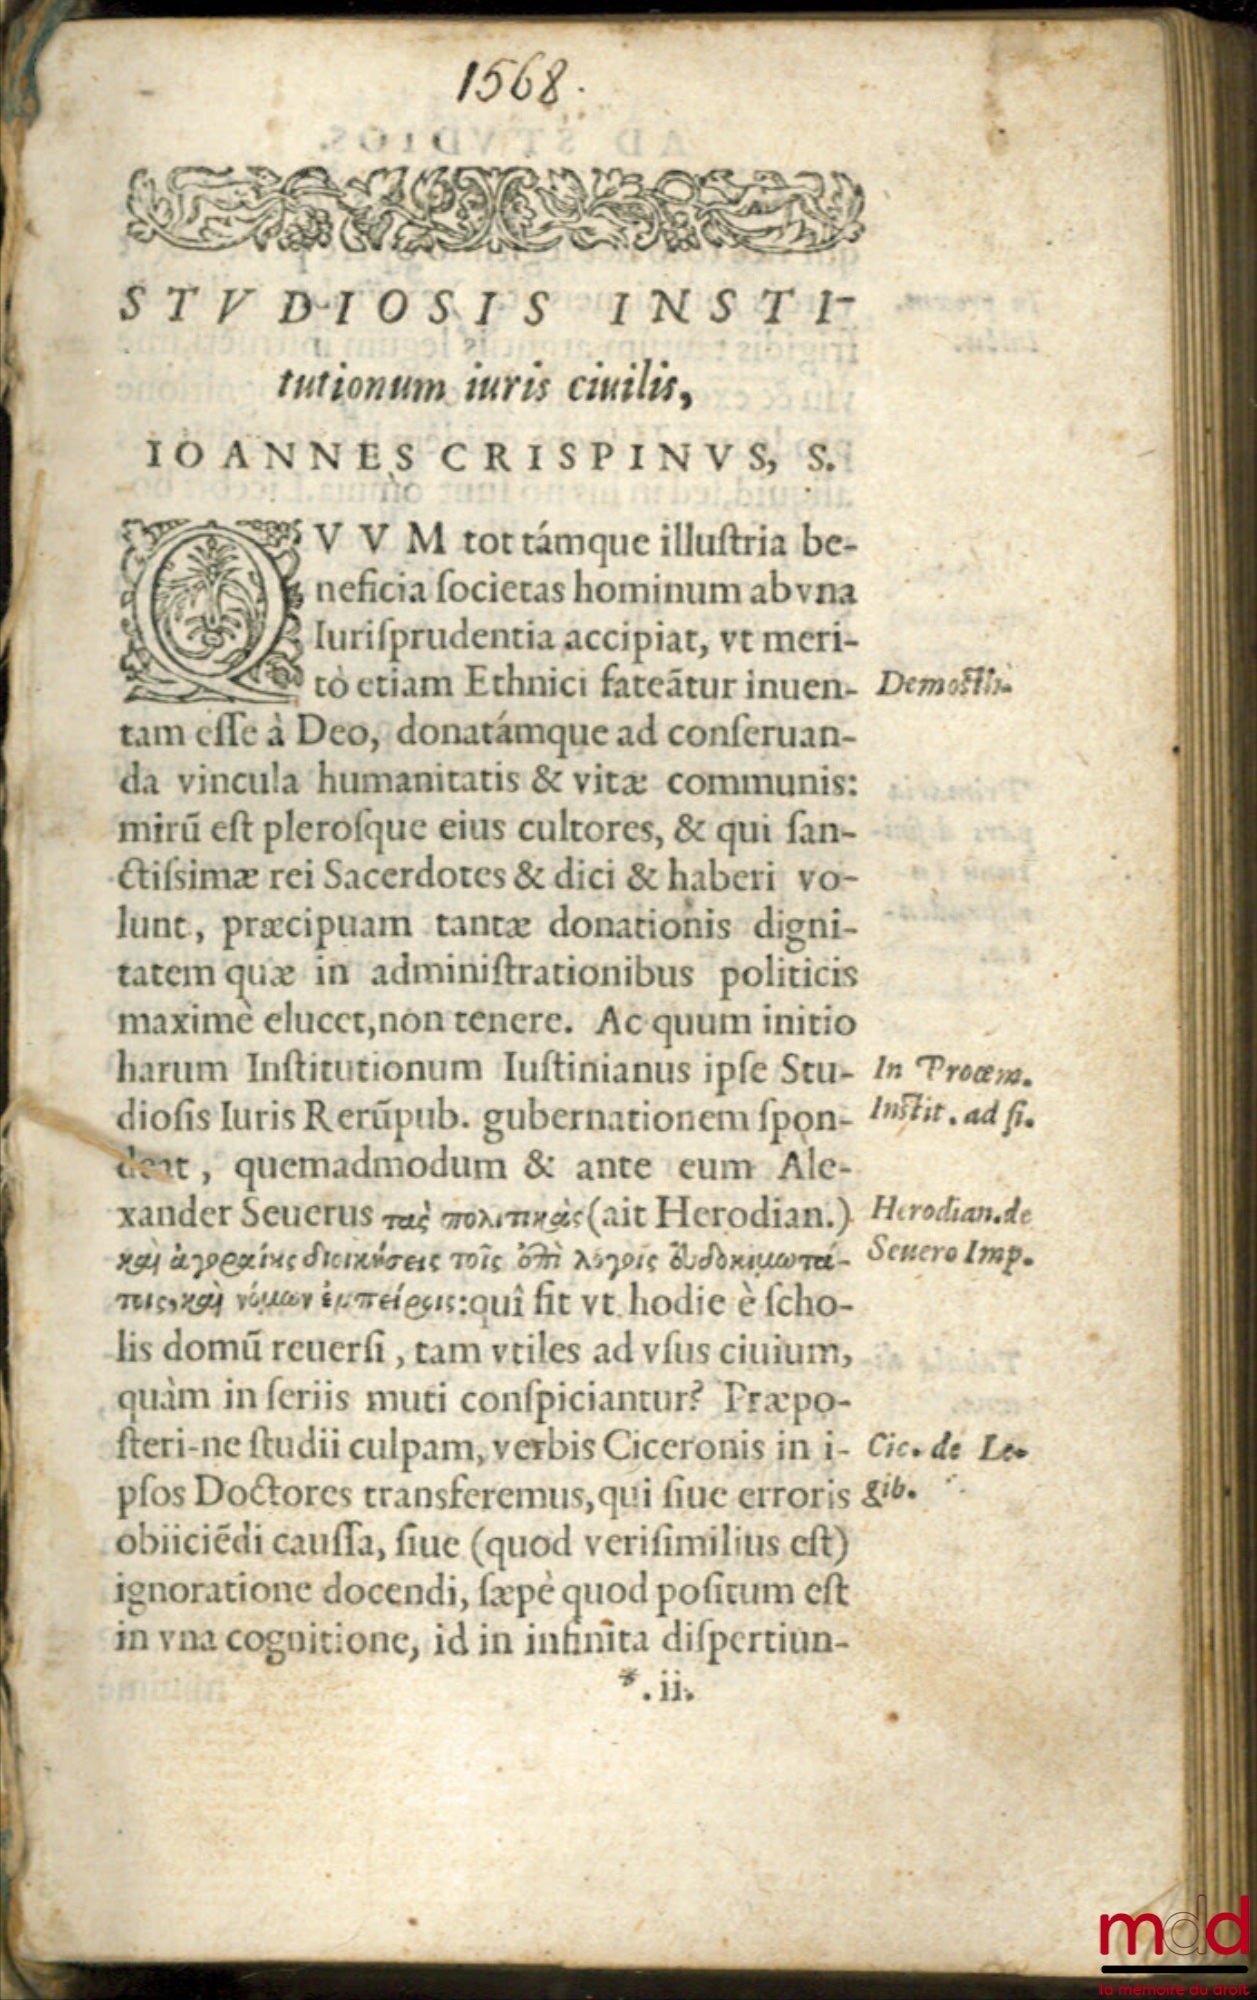 1568.
STVDIOSIS INSTI-
tutionum iuris ciuilis,
IOANNES CRISPINVS, S.
QVVM tot támque illuſtria be-
neficia ſocietas hominum ab vna
Iuriſprudentia accipiat, vt meri-
tò etiam Ethnici fateātur inuen-
Demosth.
tam eſſe à Deo, donatámque ad conſeruan-
da vincula humanitatis & vitæ communis:
mirū eſt pleroſque eius cultores, & qui ſan-
ctiſsimæ rei Sacerdotes & dici & haberi vo-
lunt, præcipuam tantæ donationis digni-
tatem quæ in adminiſtrationibus politicis
maximè elucet, non tenere. Ac quum initio
harum Inſtitutionum Iuſtinianus ipſe Stu-
In Proœm.
dioſis Iuris Rerūpub. gubernationem ſpon-
Instit. ad fi.
deat, quemadmodum & ante eum Ale-
xander Seuerus τὰς πολιτικὰς (ait Herodian.)
Herodian. de
καὶ ἀγοραίας διοικήσεις τοῖς ἐπὶ λόγοις εὐδοκιμωτά-
Seuero Imp.
τοις, καὶ νόμων ἐμπείροις: quî fit vt hodie è ſcho-
lis domū reuerſi, tam vtiles ad vſus ciuium,
quàm in ſeriis muti conſpiciantur? Præpo-
ſteri-ne ſtudii culpam, verbis Ciceronis in i-
Cic. de Le-
pſos Doctores transferemus, qui ſiue erroris
gib.
obiiciēdi cauſſa, ſiue (quod veriſimilius eſt)
ignoratione docendi, ſæpè quod poſitum eſt
in vna cognitione, id in infinita diſpertiun-
*.ii.
mdd
la mémoire du droit